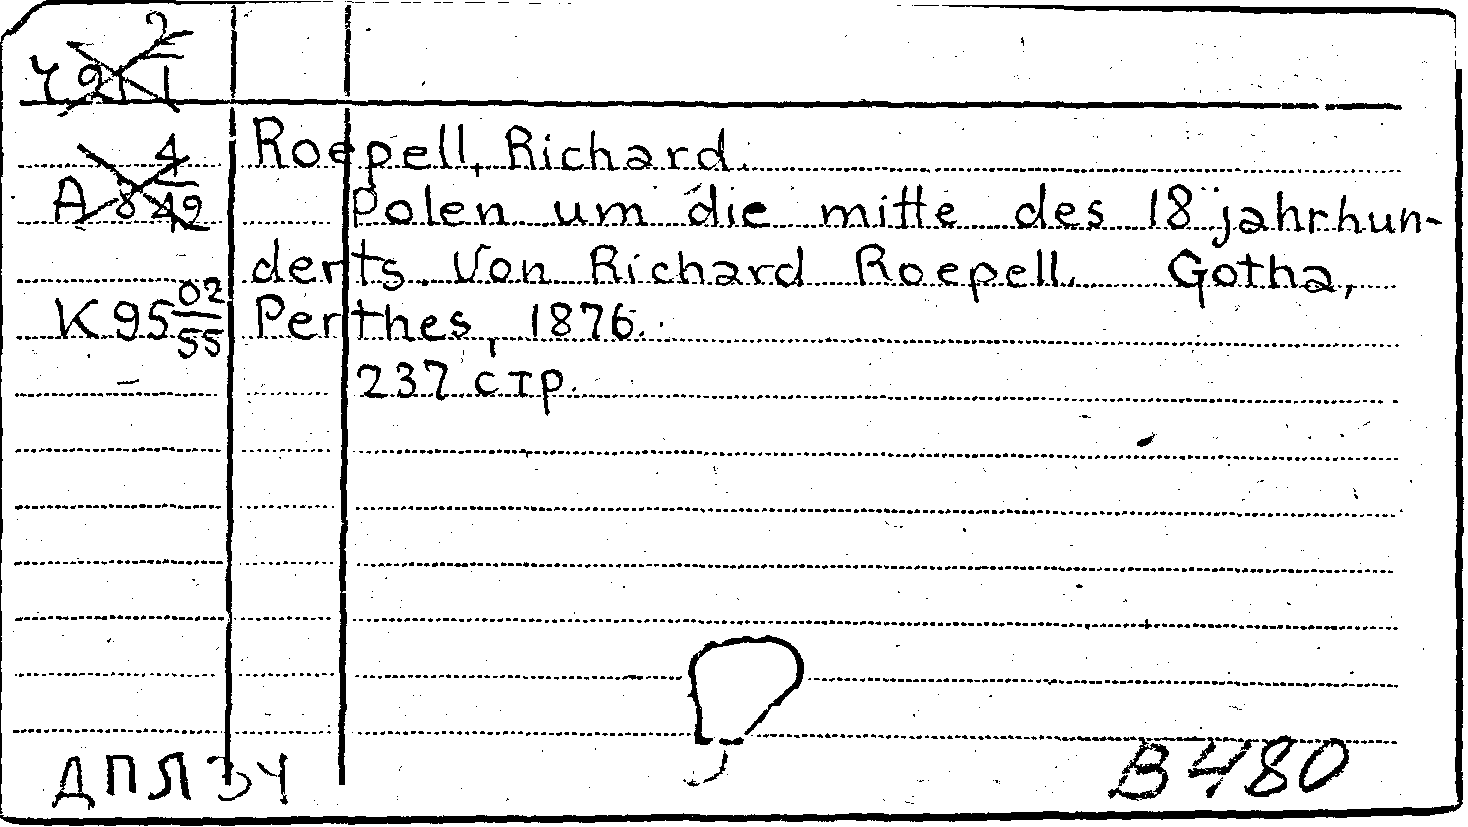 Ч 2/911
А 4/8 49
К95 02/55
Roepell, Richard.
Polen um die mitte des 18 jahrhun-
derts. Von Richard Roepell. Gotha,
Perthes, 1876.
237 стр.
ДПЛ ЗЧ
В 480